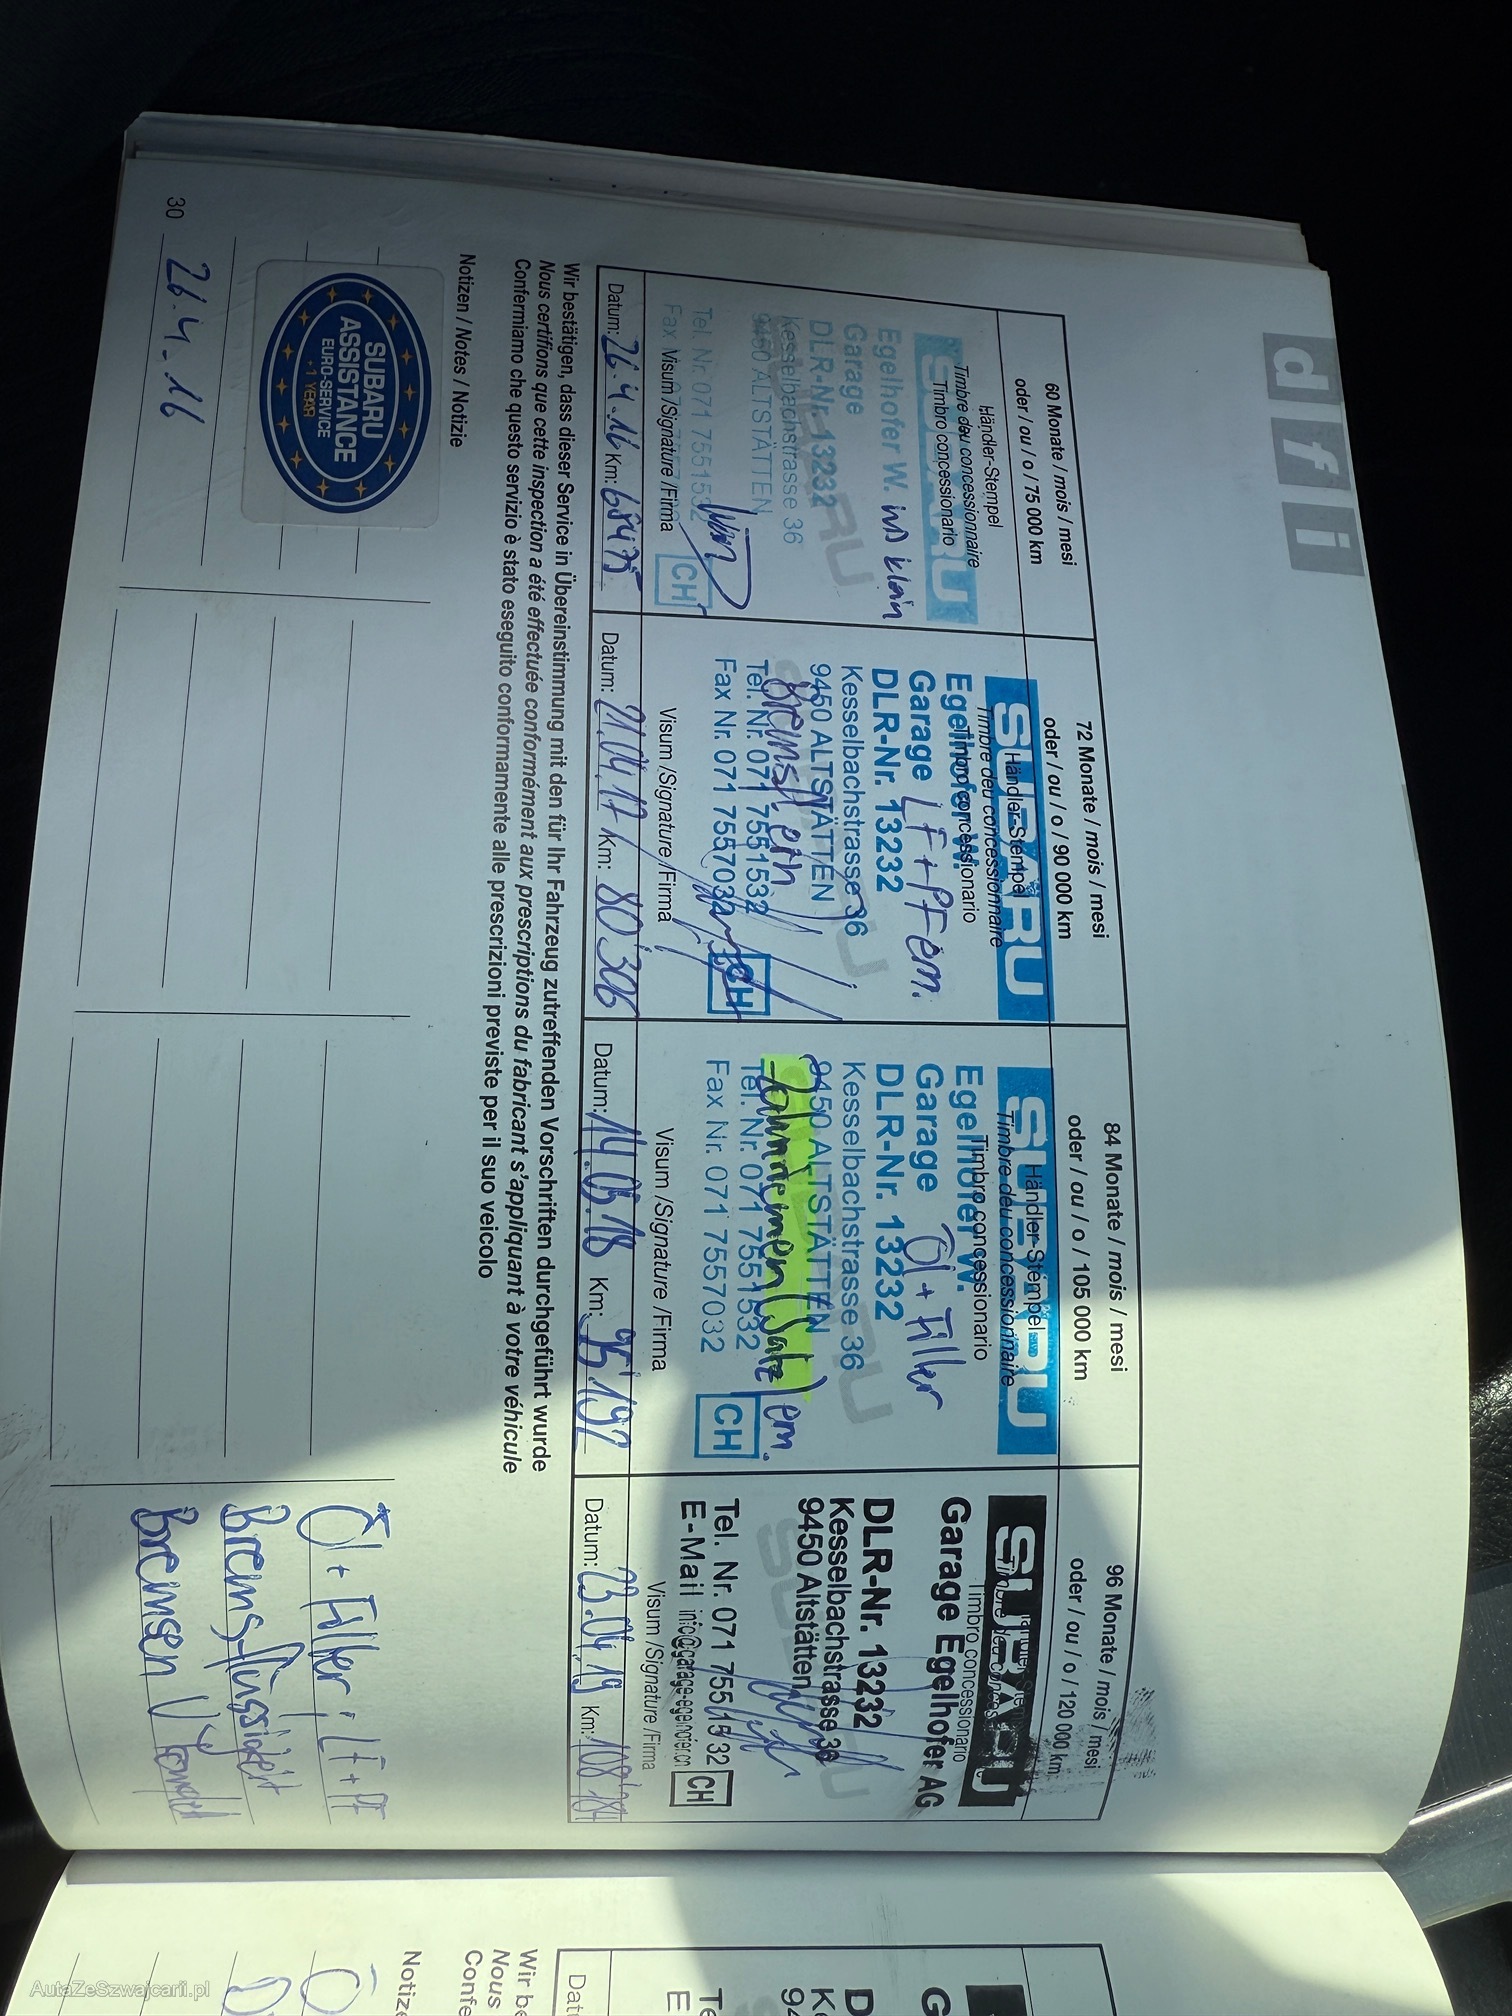 d f i
60 Monate / mois / mesi
oder / ou / o / 75 000 km
Händler-Stempel
Timbre deu concessionnaire
Timbro concessionario
SUBARU
Egelhofer W.
Garage
DLR-Nr. 13232
Kesselbachstrasse 36
9450 ALTSTÄTTEN
Tel. Nr. 071 7551532
Fax
CH
Visum /Signature /Firma
Datum: 26.4.16 Km: 68475
72 Monate / mois / mesi
oder / ou / o / 90 000 km
Händler-Stempel
Timbre deu concessionnaire
Timbro concessionario
SUBARU
Egelhofer W.
Garage LF+PF ern.
DLR-Nr. 13232
Kesselbachstrasse 36
9450 ALTSTÄTTEN
Bremsfl. ern
Tel. Nr. 071 7551532
Fax Nr. 071 7557032
CH
Visum /Signature /Firma
Datum: 21.04.17 Km: 80'306
84 Monate / mois / mesi
oder / ou / o / 105 000 km
Händler-Stempel
Timbre deu concessionnaire
Timbro concessionario
SUBARU
Egelhofer W.
Garage Öl + Filter
DLR-Nr. 13232
Kesselbachstrasse 36
9450 ALTSTÄTTEN
Zahnriemen (Satz) ern.
Tel. Nr. 071 7551532
Fax Nr. 071 7557032
CH
Visum /Signature /Firma
Datum: 14.05.18 Km: 95'192
96 Monate / mois / mesi
oder / ou / o / 120 000 km
Timbre deu
Timbro concessionario
SUBARU
Garage Egelhofer AG
DLR-Nr. 13232
Kesselbachstrasse 36
9450 Altstätten
Tel. Nr. 071 755 15 32
E-Mail info@garage-egelhofer.ch
CH
Visum /Signature /Firma
Datum: 23.04.19 Km: 108'784
Wir bestätigen, dass dieser Service in Übereinstimmung mit den für Ihr Fahrzeug zutreffenden Vorschriften durchgeführt wurde
Nous certifions que cette inspection a été effectuée conformément aux prescriptions du fabricant s'appliquant à votre véhicule
Confermiamo che questo servizio è stato eseguito conformamente alle prescrizioni previste per il suo veicolo
Notizen / Notes / Notizie
SUBARU
ASSISTANCE
EURO-SERVICE
+1 YEAR
26.4.16
Öl + Filter, LF + PF
Bremsflüssigkeit
Bremsen V
30
Wir be
Nous
Confe
Notize
AutaZeSzwajcarii.pl